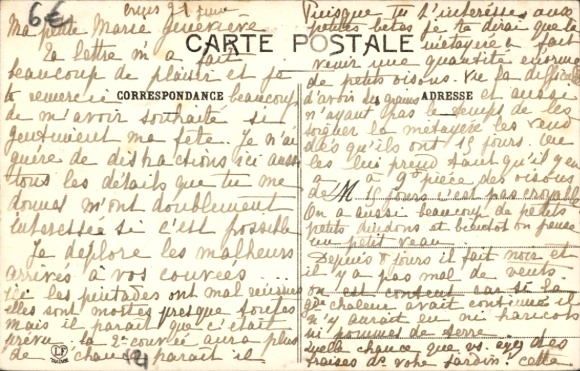 6€
21 juin
Ma petite Marie Geneviève
Ta lettre m'a fait
beaucoup de plaisir et je
te remercie beaucoup
de m'avoir souhaité si
gentiment ma fête. Je n'ai
guère de distractions ici aussi
tous les détails que tu me
donnes m'ont doublement
intéressée si c'est possible
Je déplore les malheurs
arrivés à vos couvées ...
ici les pintades ont mal réussies
elles sont mortes presque toutes
mais il parait que c'était
prévu. la 2e couvée aura plus
de chance parait il
CARTE POSTALE
CORRESPONDANCE
ADRESSE
Puisque tu t'intéresses aux
petites bêtes je te dirai que la
métayère a fait
venir une quantité énorme
de petits oisons. Vu la difficulté
d'avoir des grains et aussi
n'ayant pas le temps de les
soigner la métayère les vend
dès qu'ils ont 15 jours. On
les lui prend tant qu'il y en
a à 9f pièce des oisons
de M 15 jours c'est pas croyable
On a aussi beaucoup de petits
petits dindons et bientôt on
un petit veau
Depuis 8 jours il fait noir et
il y a pas mal de vent
on est content car si la
gde chaleur avait continué il
n'y aurait eu ni haricots
ni pommes de terre
Quelle chance que vs. ayez des
fraises ds votre jardin! cette
LF